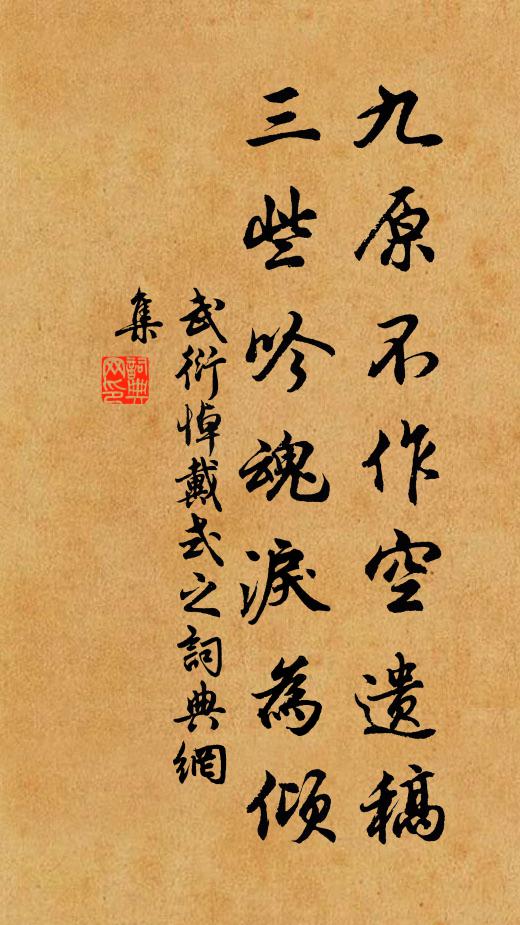 九原不作空遺稿
三些吟魂淚為傾
武衍悼戴式之詞典網
集
詞典網印